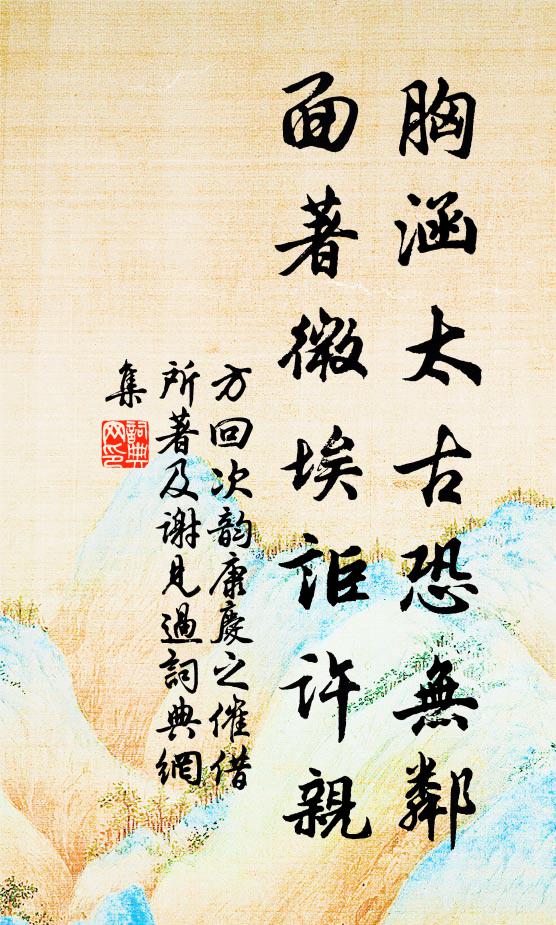 胸涵太古恐無鄰
面著微埃詎許親
方回次韵康慶之催借
所著及谢見過詞典網
集
詞典網印